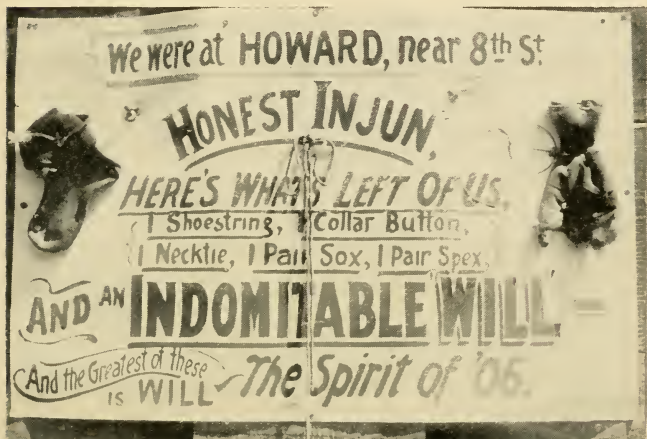 We were at HOWARD, near 8th St.
HONEST INJUN,
HERE'S WHAT'S LEFT OF US,
1 Shoestring, 1 Collar Button,
1 Necktie, 1 Pair Sox, 1 Pair Spex,
AND AN INDOMITABLE WILL
And the Greatest of these
IS WILL - The Spirit of '06.